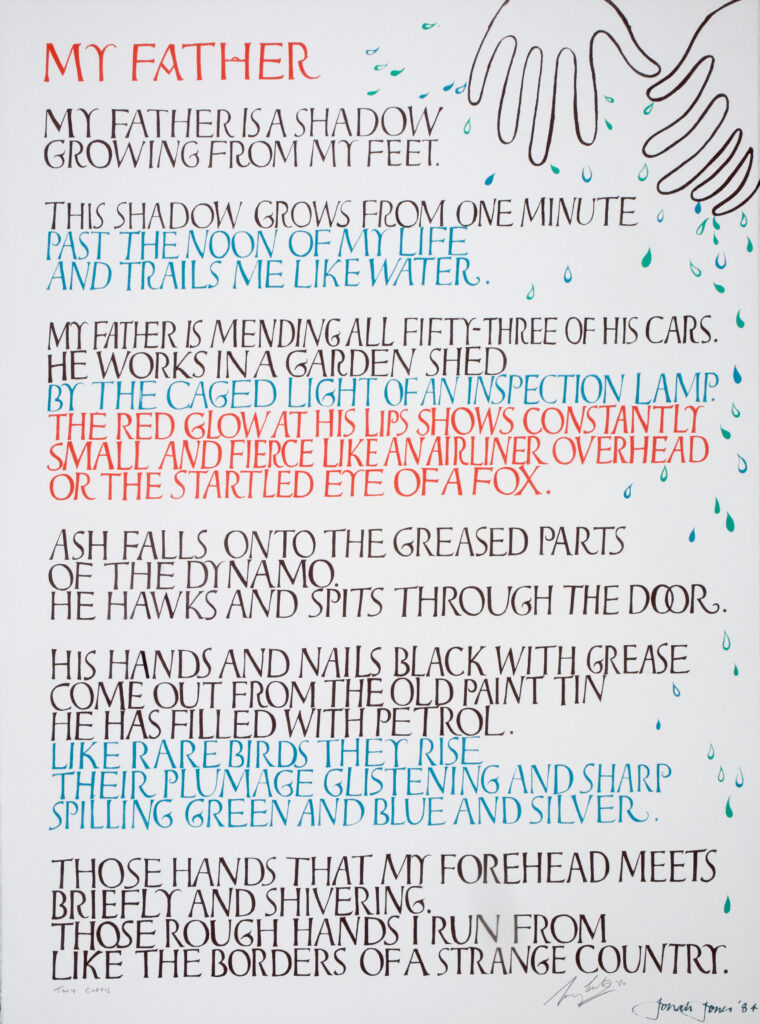 MY FATHER
MY FATHER IS A SHADOW
GROWING FROM MY FEET.
THIS SHADOW GROWS FROM ONE MINUTE
PAST THE NOON OF MY LIFE
AND TRAILS ME LIKE WATER.
MY FATHER IS MENDING ALL FIFTY-THREE OF HIS CARS.
HE WORKS IN A GARDEN SHED
BY THE CAGED LIGHT OF AN INSPECTION LAMP.
THE RED GLOW AT HIS LIPS SHOWS CONSTANTLY
SMALL AND FIERCE LIKE AN AIRLINER OVERHEAD
OR THE STARTLED EYE OF A FOX.
ASH FALLS ONTO THE GREASED PARTS
OF THE DYNAMO.
HE HAWKS AND SPITS THROUGH THE DOOR.
HIS HANDS AND NAILS BLACK WITH GREASE
COME OUT FROM THE OLD PAINT TIN
HE HAS FILLED WITH PETROL.
LIKE RARE BIRDS THEY RISE
THEIR PLUMAGE GLISTENING AND SHARP
SPILLING GREEN AND BLUE AND SILVER.
THOSE HANDS THAT MY FOREHEAD MEETS
BRIEFLY AND SHIVERING.
THOSE ROUGH HANDS I RUN FROM
LIKE THE BORDERS OF A STRANGE COUNTRY.
TONY CURTIS
Jonah Jones '84